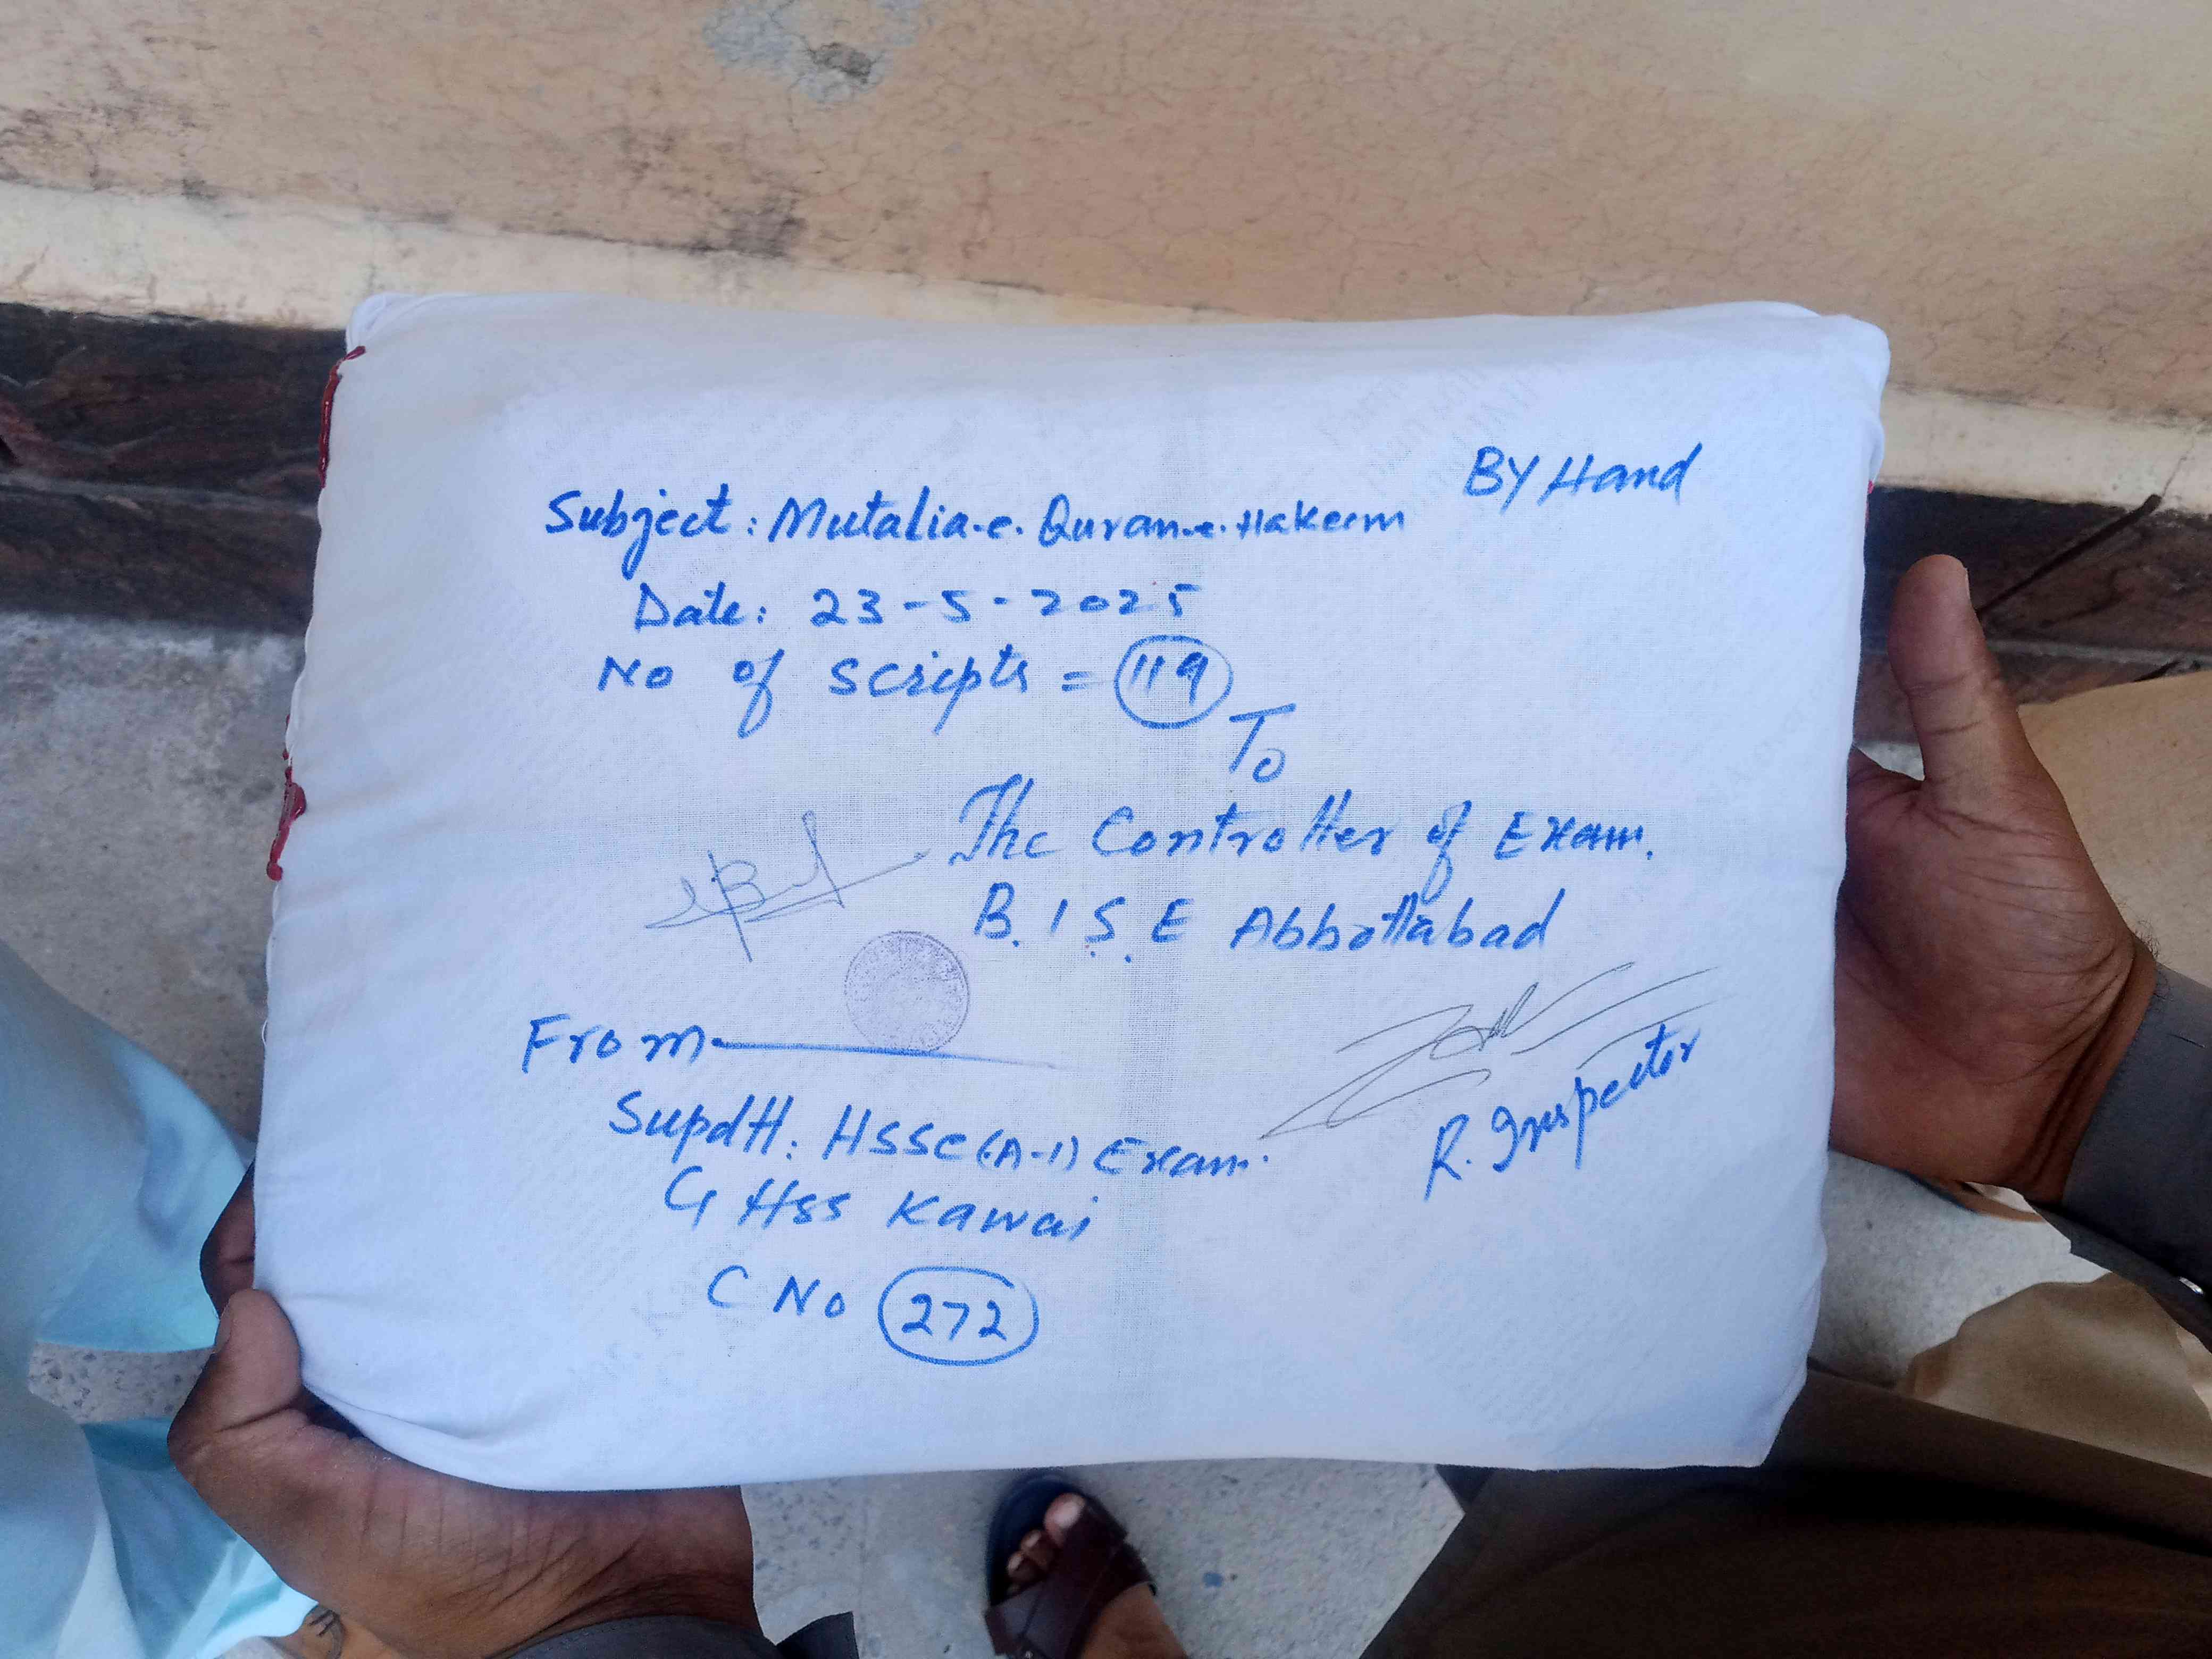 BY Hand
Subject: Mutalia.e. Quran.e. Hakeem
Date: 23-5-2025
No of scripts = 119
To
The Controller of Exam.
B.I.S.E Abbottabad
From
Supdtt: HSSC(A-1) Exam.
R. Inspector
G Hss Kawai
C No 272